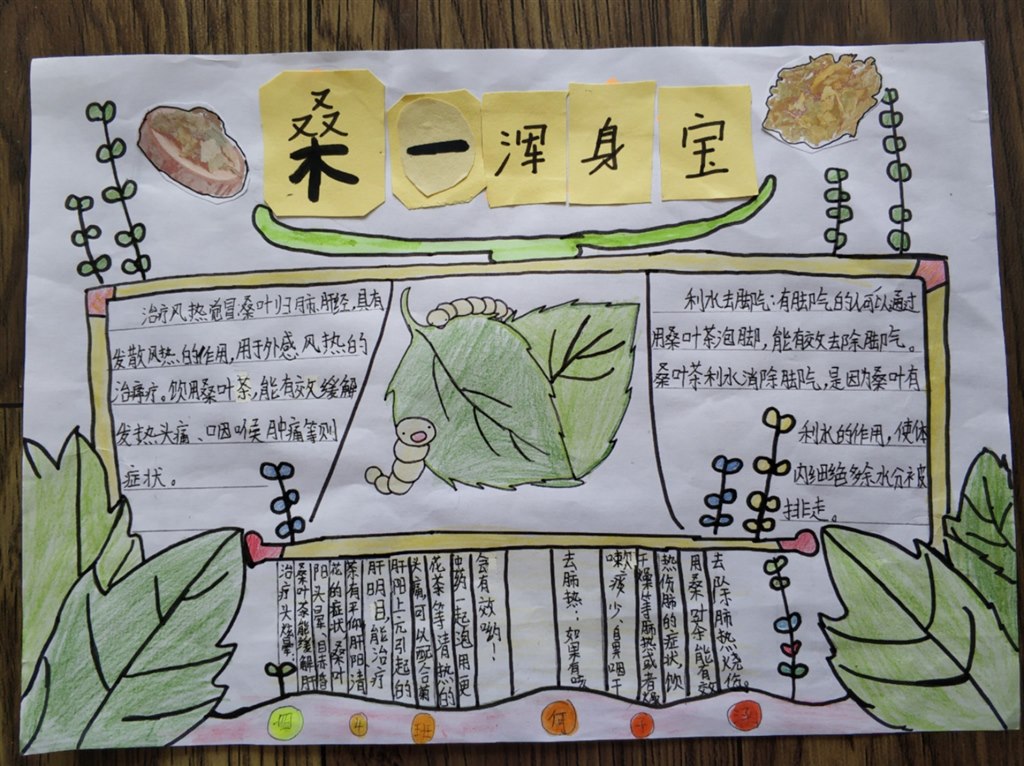 桑一浑身宝
治疗风热感冒:桑叶归肺、肝经,具有
发散风热的作用,用于外感风热的
治疗。饮用桑叶茶,能有效缓解
发热头痛、咽喉肿痛等则
症状。
利水去脚气:有脚气的以可以通过
用桑叶茶泡脚,能有效去除脚气。
桑叶茶利水消除脚气,是因为桑叶有
利水的作用,使体
内细绝多余水分被
排走。
治疗头炫晕:
桑叶茶能缓解肝
阳头晕、目赤昏
花的症状。桑叶
茶有平仰肝阳清
肝明目能治疗
肝阳上亢引起的
头痛,可以配合菊
花茶等清热的
中药一起泡用更
会有效哟!
去肺热:如果有咳
嗽痰少、鼻咽干
干燥等肺热或者燥
热伤肺的症状,饮
用桑叶茶能有效
去除肺热烧伤。
四 4 班 何 子